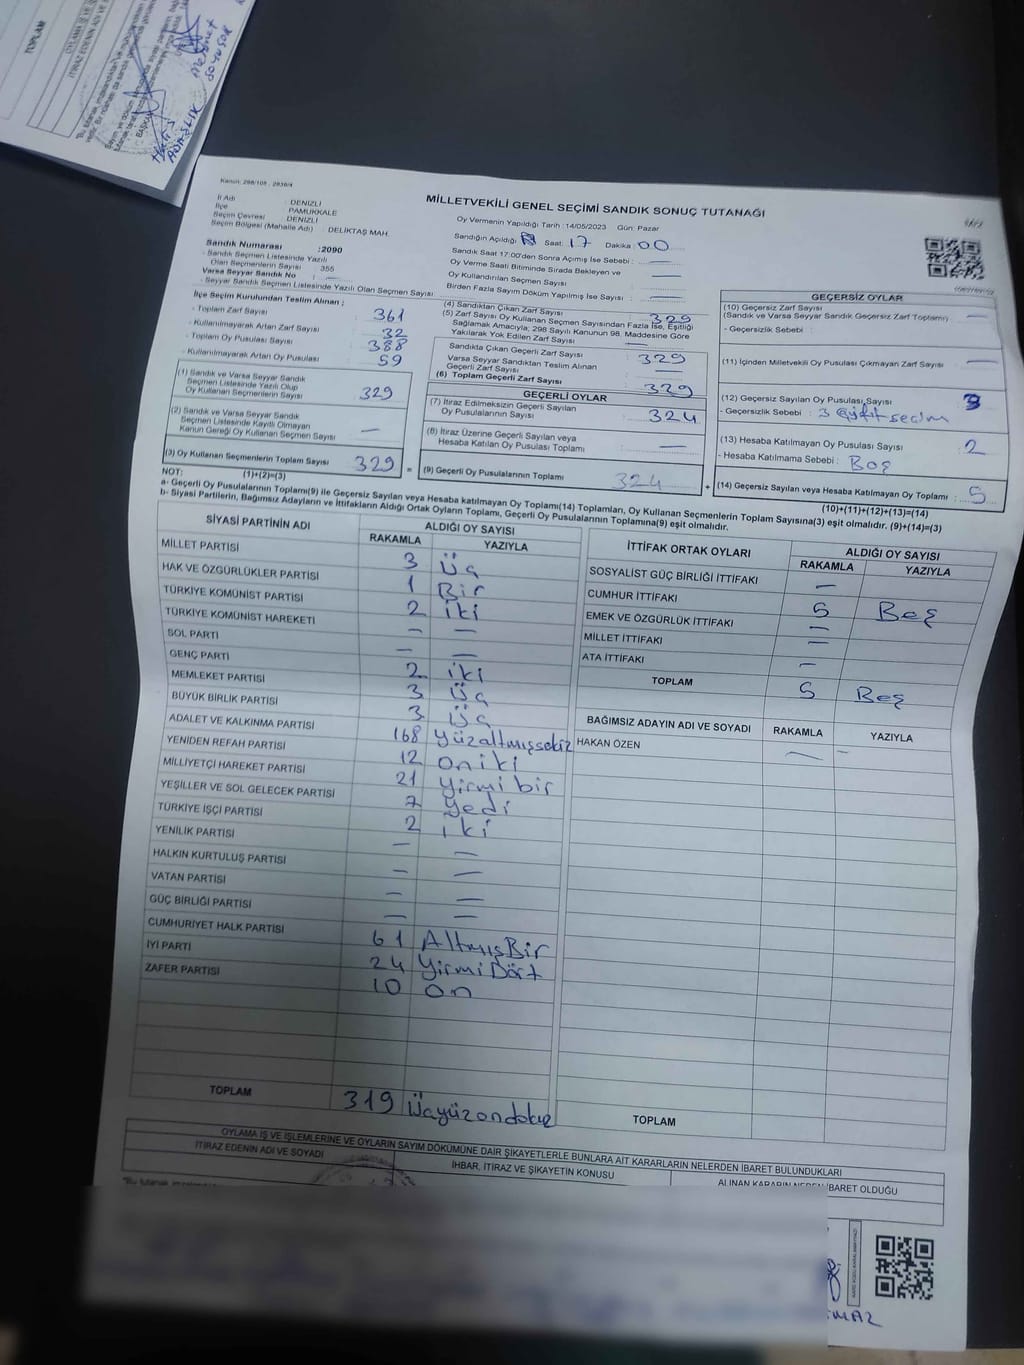 TOPLAM
İTİRAZ EDENİN ADI VE
BAŞKAN
Kanun: 298/105 - 2839/4
MİLLETVEKİLİ GENEL SEÇİMİ SANDIK SONUÇ TUTANAĞI
İl Adı : DENİZLİ
İlçe : PAMUKKALE
Seçim Çevresi : DENİZLİ
Seçim Bölgesi (Mahalle Adı) : DELİKTAŞ MAH.
Sandık Numarası : 2090
- Sandık Seçmen Listesinde Yazılı
Olan Seçmenlerin Sayısı 355
Varsa Seyyar Sandık No : —
- Seyyar Sandık Seçmen Listesinde Yazılı Olan Seçmen Sayısı
Oy Vermenin Yapıldığı Tarih : 14/05/2023 Gün: Pazar
Sandığın Açıldığı Saat: 17 Dakika: 00
Sandık Saat 17:00'den Sonra Açılmış İse Sebebi : —
Oy Verme Saati Bitiminde Sırada Bekleyen ve
Oy Kullandırılan Seçmen Sayısı : —
Birden Fazla Sayım Döküm Yapılmış İse Sayısı : —
İlçe Seçim Kurulundan Teslim Alınan ;
- Toplam Zarf Sayısı : 361
- Kullanılmayarak Artan Zarf Sayısı : 32
- Toplam Oy Pusulası Sayısı : 388
- Kullanılmayarak Artan Oy Pusulası : 59
(1) Sandık ve Varsa Seyyar Sandık
Seçmen Listesinde Yazılı Olup
Oy Kullanan Seçmenlerin Sayısı : 329
(2) Sandık ve Varsa Seyyar Sandık
Seçmen Listesinde Kayıtlı Olmayan
Kanun Gereği Oy Kullanan Seçmen Sayısı : —
(3) Oy Kullanan Seçmenlerin Toplam Sayısı : 329 =
(1)+(2)=(3)
(4) Sandıktan Çıkan Zarf Sayısı : 329
(5) Zarf Sayısı Oy Kullanan Seçmen Sayısından Fazla İse, Eşitliği
Sağlamak Amacıyla; 298 Sayılı Kanunun 98. Maddesine Göre
Yakılarak Yok Edilen Zarf Sayısı : —
Sandıkta Çıkan Geçerli Zarf Sayısı : 329
Varsa Seyyar Sandıktan Teslim Alınan
Geçerli Zarf Sayısı : —
(6) Toplam Geçerli Zarf Sayısı : 329
GEÇERLİ OYLAR
(7) İtiraz Edilmeksizin Geçerli Sayılan
Oy Pusulalarının Sayısı : 324
(8) İtiraz Üzerine Geçerli Sayılan veya
Hesaba Katılan Oy Pusulası Toplamı : —
(9) Geçerli Oy Pusulalarının Toplamı : 324 +
GEÇERSİZ OYLAR
(10) Geçersiz Zarf Sayısı
(Sandık ve Varsa Seyyar Sandık Geçersiz Zarf Toplamı) : —
- Geçersizlik Sebebi :
(11) İçinden Milletvekili Oy Pusulası Çıkmayan Zarf Sayısı : —
(12) Geçersiz Sayılan Oy Pusulası Sayısı : 3
- Geçersizlik Sebebi : 3 Çift seçim
(13) Hesaba Katılmayan Oy Pusulası Sayısı : 2
- Hesaba Katılmama Sebebi : Boş
(14) Geçersiz Sayılan veya Hesaba Katılmayan Oy Toplamı : 5
(10)+(11)+(12)+(13)=(14)
NOT:
a- Geçerli Oy Pusulalarının Toplamı(9) ile Geçersiz Sayılan veya Hesaba katılmayan Oy Toplamı(14) Toplamları, Oy Kullanan Seçmenlerin Toplam Sayısına(3) eşit olmalıdır. (9)+(14)=(3)
b- Siyasi Partilerin, Bağımsız Adayların ve İttifakların Aldığı Ortak Oyların Toplamı, Geçerli Oy Pusulalarının Toplamına(9) eşit olmalıdır.
SİYASİ PARTİNİN ADI ALDIĞI OY SAYISI
RAKAMLA YAZIYLA
MİLLET PARTİSİ 3 Üç
HAK VE ÖZGÜRLÜKLER PARTİSİ 1 Bir
TÜRKİYE KOMÜNİST PARTİSİ 2 iki
TÜRKİYE KOMÜNİST HAREKETİ — —
SOL PARTİ — —
GENÇ PARTİ 2 iki
MEMLEKET PARTİSİ 3 Üç
BÜYÜK BİRLİK PARTİSİ 3 Üç
ADALET VE KALKINMA PARTİSİ 168 Yüzaltmışsekiz
YENİDEN REFAH PARTİSİ 12 oniki
MİLLİYETÇİ HAREKET PARTİSİ 21 Yirmi bir
YEŞİLLER VE SOL GELECEK PARTİSİ 7 Yedi
TÜRKİYE İŞÇİ PARTİSİ 2 iki
YENİLİK PARTİSİ — —
HALKIN KURTULUŞ PARTİSİ — —
VATAN PARTİSİ — —
GÜÇ BİRLİĞİ PARTİSİ — —
CUMHURİYET HALK PARTİSİ 61 Altmış Bir
İYİ PARTİ 24 Yirmi Dört
ZAFER PARTİSİ 10 On
TOPLAM 319 Üçyüzondokuz
İTTİFAK ORTAK OYLARI ALDIĞI OY SAYISI
RAKAMLA YAZIYLA
SOSYALİST GÜÇ BİRLİĞİ İTTİFAKI —
CUMHUR İTTİFAKI 5 Beş
EMEK VE ÖZGÜRLÜK İTTİFAKI —
MİLLET İTTİFAKI —
ATA İTTİFAKI —
TOPLAM 5 Beş
BAĞIMSIZ ADAYIN ADI VE SOYADI RAKAMLA YAZIYLA
HAKAN ÖZEN — —
TOPLAM
OYLAMA İŞ VE İŞLEMLERİNE VE OYLARIN SAYIM DÖKÜMÜNE DAİR ŞİKAYETLERLE BUNLARA AİT KARARLARIN NELERDEN İBARET BULUNDUKLARI
İTİRAZ EDENİN ADI VE SOYADI
İHBAR, İTİRAZ VE ŞİKAYETİN KONUSU
ALINAN KARARIN NEDEN İBARET OLDUĞU